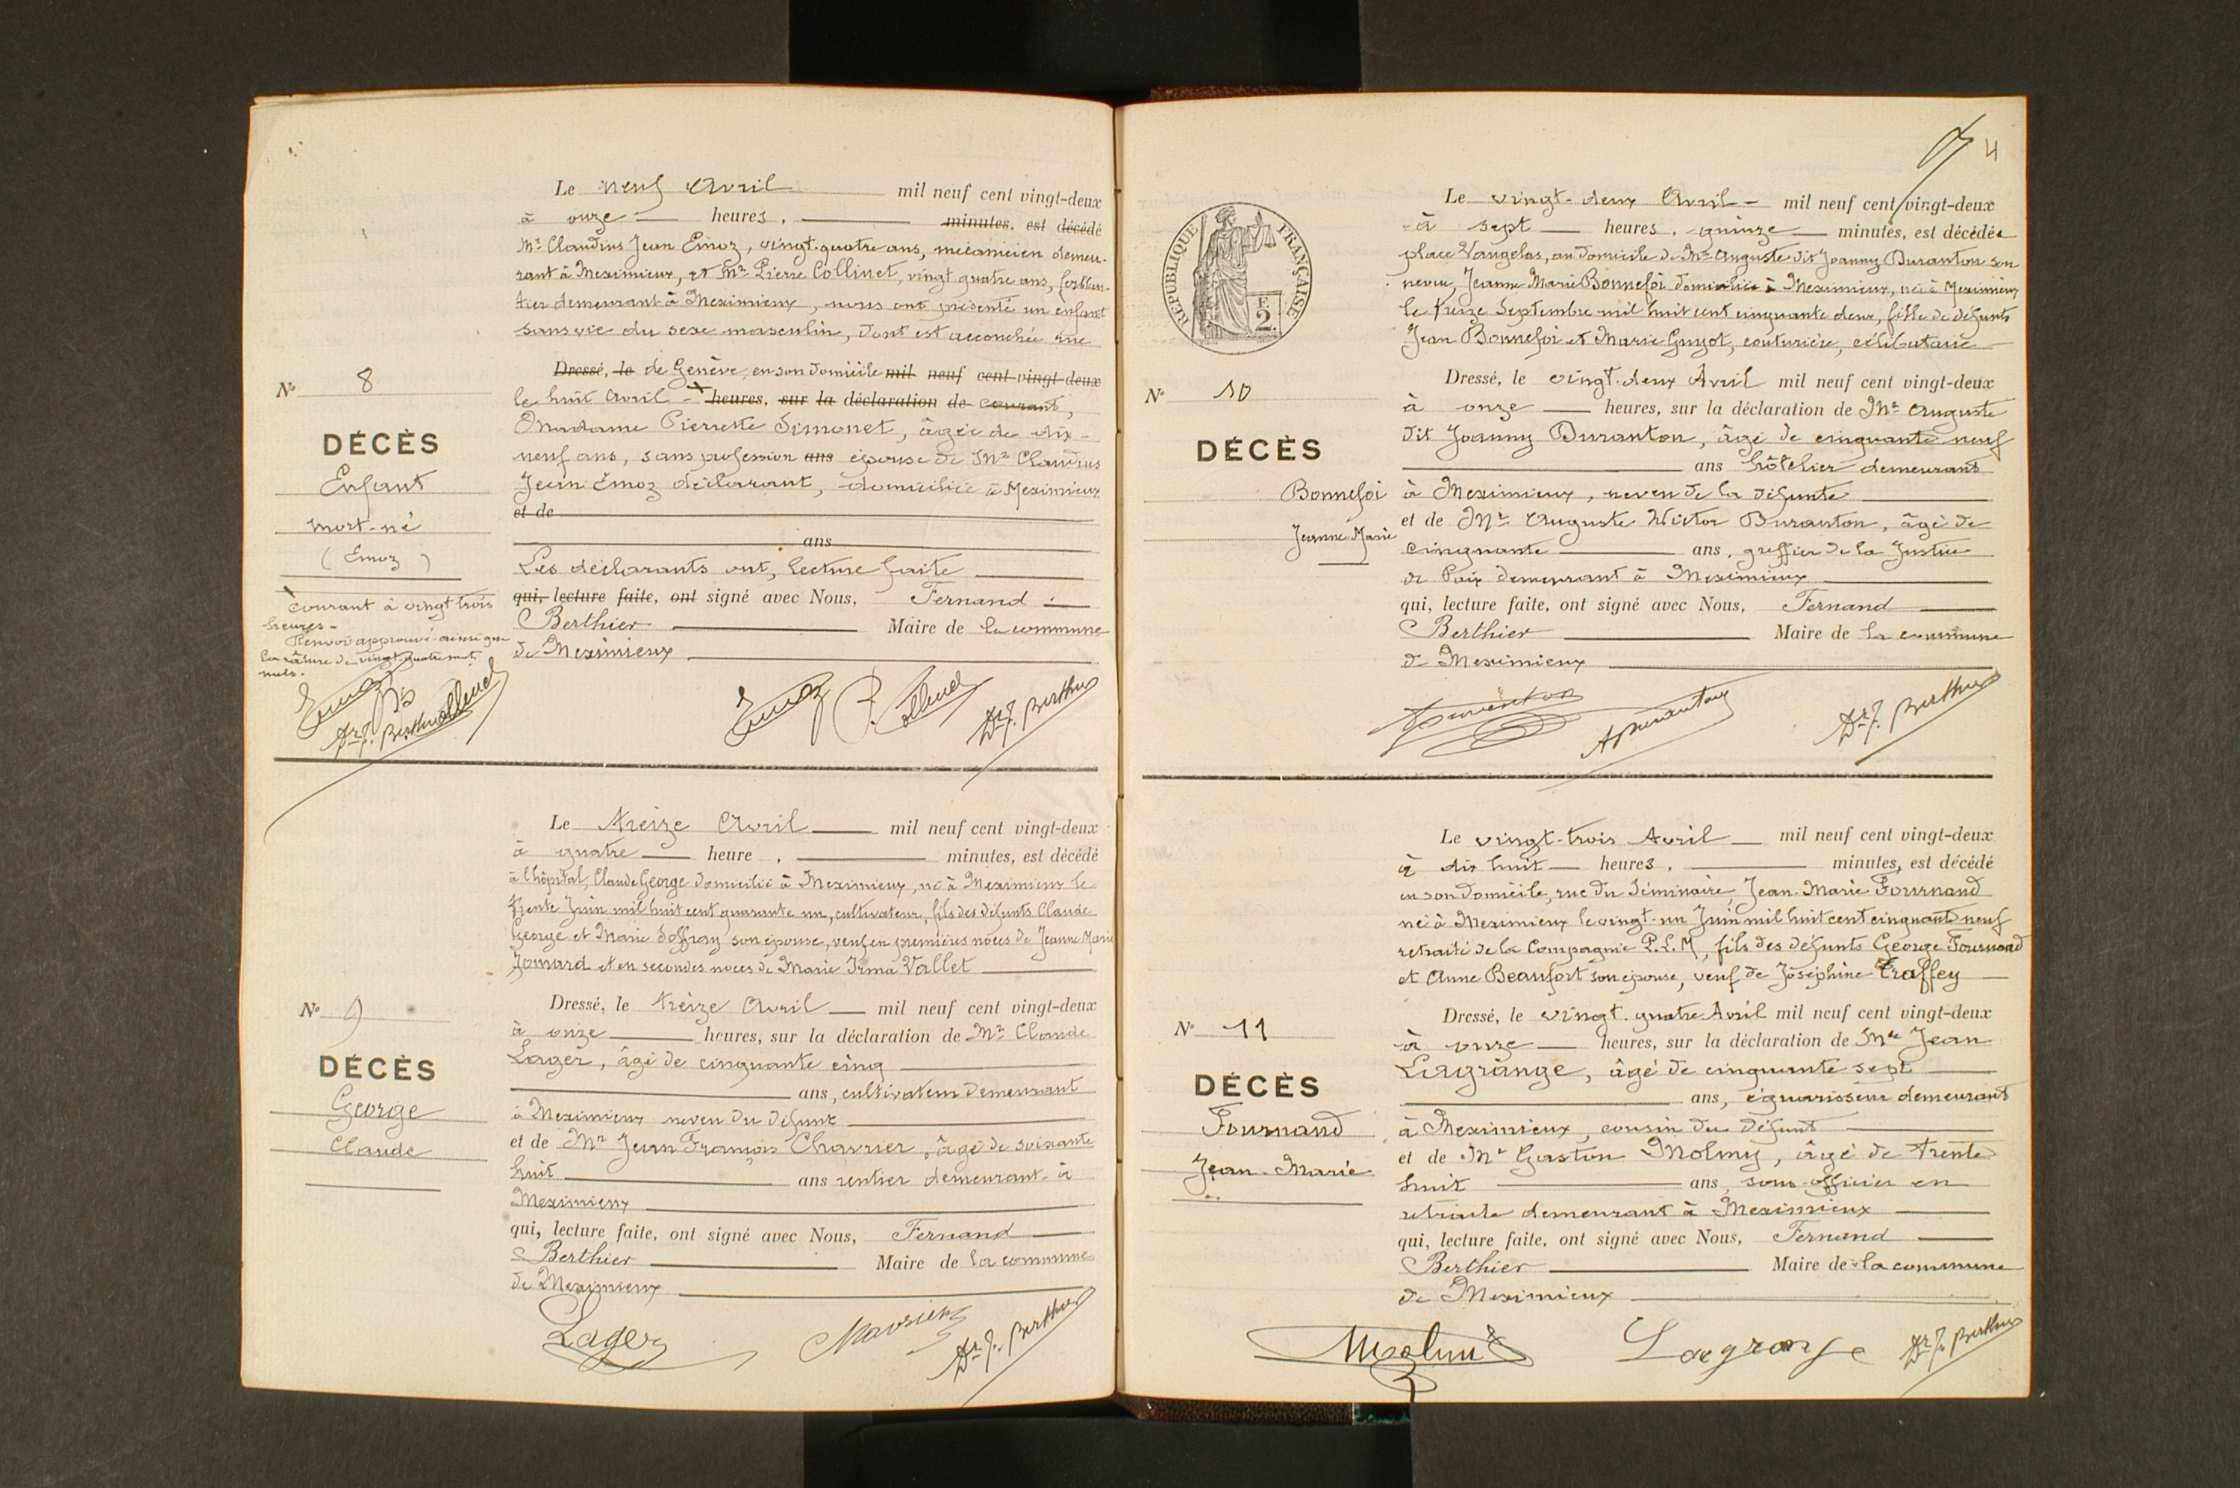 Le neuf Avril mil neuf cent vingt-deux
à onze heures, minutes, est décédé
Mr Claudius Jean Emoz, vingt-quatre ans, mécanicien demeu-
rant à Meximieux, et Mr Pierre Collinet, vingt quatre ans, ferblan-
tier demeurant à Meximieux, nous ont présenté un enfant
sans vie du sexe masculin, dont est accouchée rue
Dressé, le de Genève, en son domicile mil neuf cent vingt-deux
le huit Avril heures, sur la déclaration de courant,
Madame Pierrette Simonet, âgée de dix-
neuf ans, sans profession ans épouse de Mr Claudius
Jean Emoz déclarant, domiciliée à Meximieux
et de
ans
Les déclarants ont, lecture faite
qui, lecture faite, ont signé avec Nous, Fernand
Berthier Maire de la commune
de Meximieux
No 8
DÉCÈS
Enfant
mort-né
(Emoz)
courant à vingt trois
heures -
Renvoi approuvé ainsi que
la râture de vingt quatre mots
nuls.
Emoz
Collinet
Dr F. Berthier
Emoz P. Collinet Dr F. Berthier
Le treize Avril mil neuf cent vingt-deux
à quatre heure, minutes, est décédé
à l'hôpital, Claude George domicilié à Meximieux, né à Meximieux le
trente Juin mil huit cent quarante un, cultivateur, fils des défunts Claude
George et Marie Soffray son épouse, veuf en premières noces de Jeanne Marie
Jomard et en secondes noces de Marie Irma Vallet
No 9
DÉCÈS
George
Claude
Dressé, le treize Avril mil neuf cent vingt-deux
à onze heures, sur la déclaration de Mr Claude
Lager, âgé de cinquante cinq
ans, cultivateur demeurant
à Meximieux neveu du défunt
et de Mr Jean François Chavrier, âgé de soixante
huit ans rentier demeurant à
Meximieux
qui, lecture faite, ont signé avec Nous, Fernand
Berthier Maire de la commune
de Meximieux
Lager Chavrier Dr F. Berthier
4
RÉPUBLIQUE FRANÇAISE
F.
2
Le vingt-deux Avril mil neuf cent vingt-deux
à sept heures, quinze minutes, est décédée
place Vaugelas, au domicile de Mr Auguste dit Joanny Duranton son
neveu, Jeanne Marie Bonnefoi domiciliée à Meximieux, née à Meximieux
le treize Septembre mil huit cent cinquante deux, fille de défunts
Jean Bonnefoi et Marie Guyot, couturière, célibataire
No 10
DÉCÈS
Bonnefoi
Jeanne-Marie
Dressé, le vingt-deux Avril mil neuf cent vingt-deux
à onze heures, sur la déclaration de Mr Auguste
dit Joanny Duranton, âgé de cinquante neuf
ans hôtelier demeurant
à Meximieux, neveu de la défunte
et de Mr Auguste Victor Duranton, âgé de
cinquante ans, greffier de la Justice
de Paix demeurant à Meximieux
qui, lecture faite, ont signé avec Nous, Fernand
Berthier Maire de la commune
de Meximieux
Duranton A Duranton Dr F. Berthier
Le vingt-trois Avril mil neuf cent vingt-deux
à dix huit heures, minutes, est décédé
en son domicile, rue du Séminaire, Jean-Marie Fournand
né à Meximieux le vingt-un Juin mil huit cent cinquante neuf
retraité de la Compagnie P.L.M, fils des défunts George Fournand
et Anne Beaufort son épouse, veuf de Joséphine Traffey
No 11
DÉCÈS
Fournand
Jean-Marie
Dressé, le vingt-quatre Avril mil neuf cent vingt-deux
à onze heures, sur la déclaration de Mr Jean
Lagrange, âgé de cinquante sept
ans, équarisseur demeurant
à Meximieux, cousin du défunt
et de Mr Gaston Molmy, âgé de trente
huit ans, sous-officier en
retraite demeurant à Meximieux
qui, lecture faite, ont signé avec Nous, Fernand
Berthier Maire de la commune
de Meximieux
Lagrange Dr F. Berthier